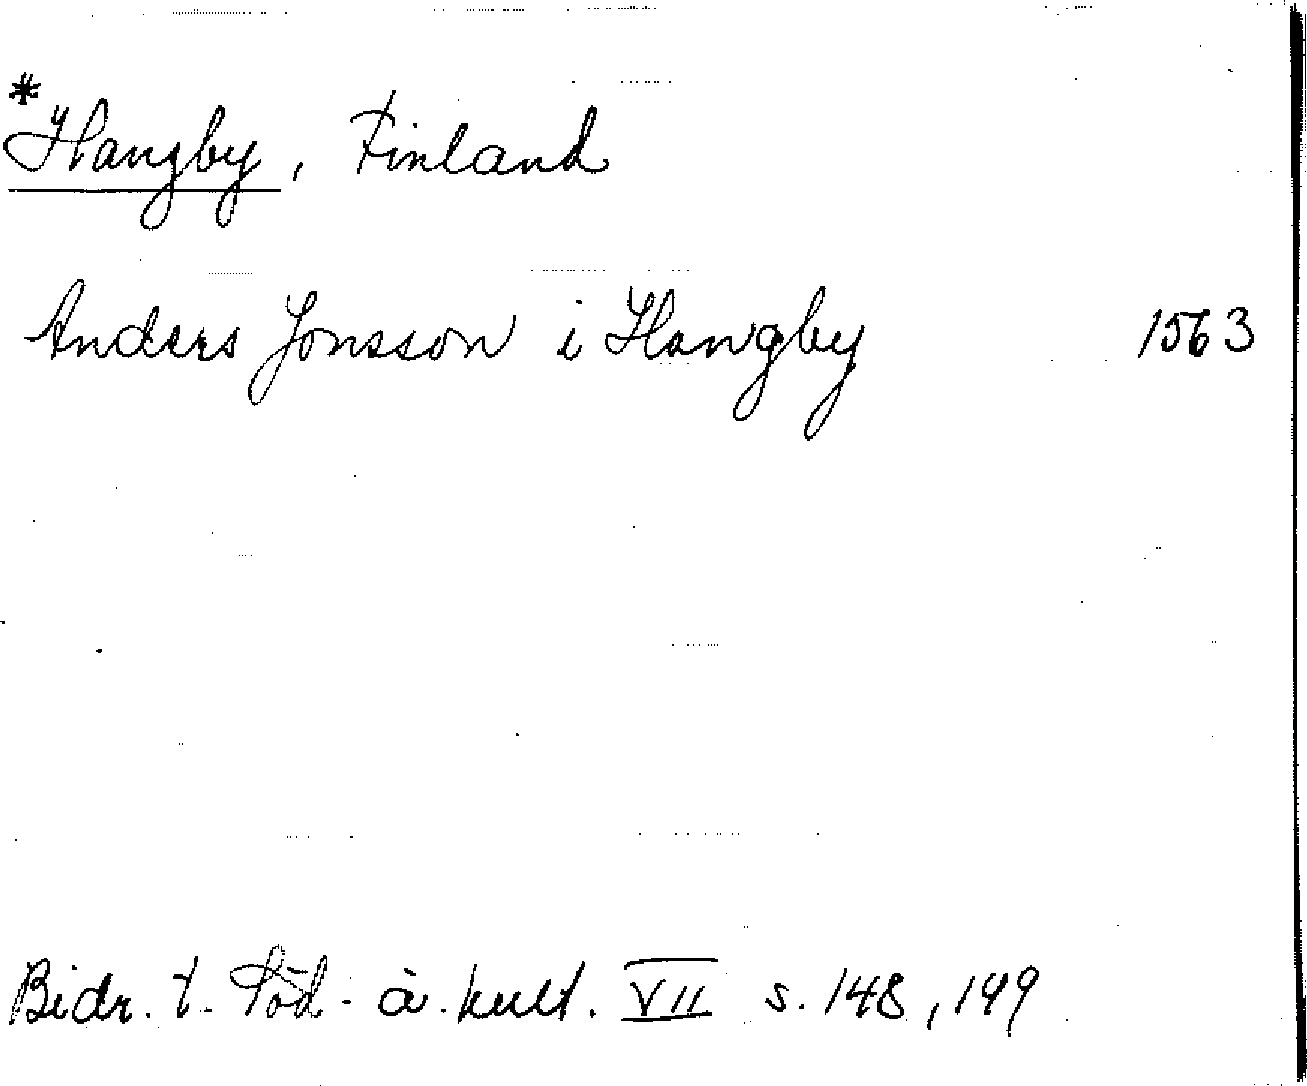 *Hangby, Finland
Anders Jonsson i Hangby 1563
Bidr. t. Söd. ö. kult. VII s. 148, 149